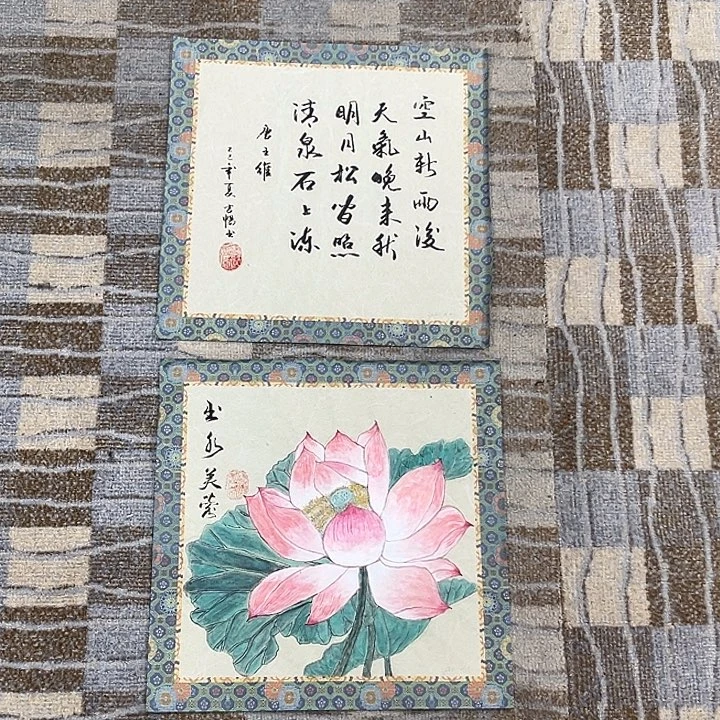 空山新雨後
天氣晚来秋
明月松间照
清泉石上流
唐王維
乙巳年夏
出水芙蓉